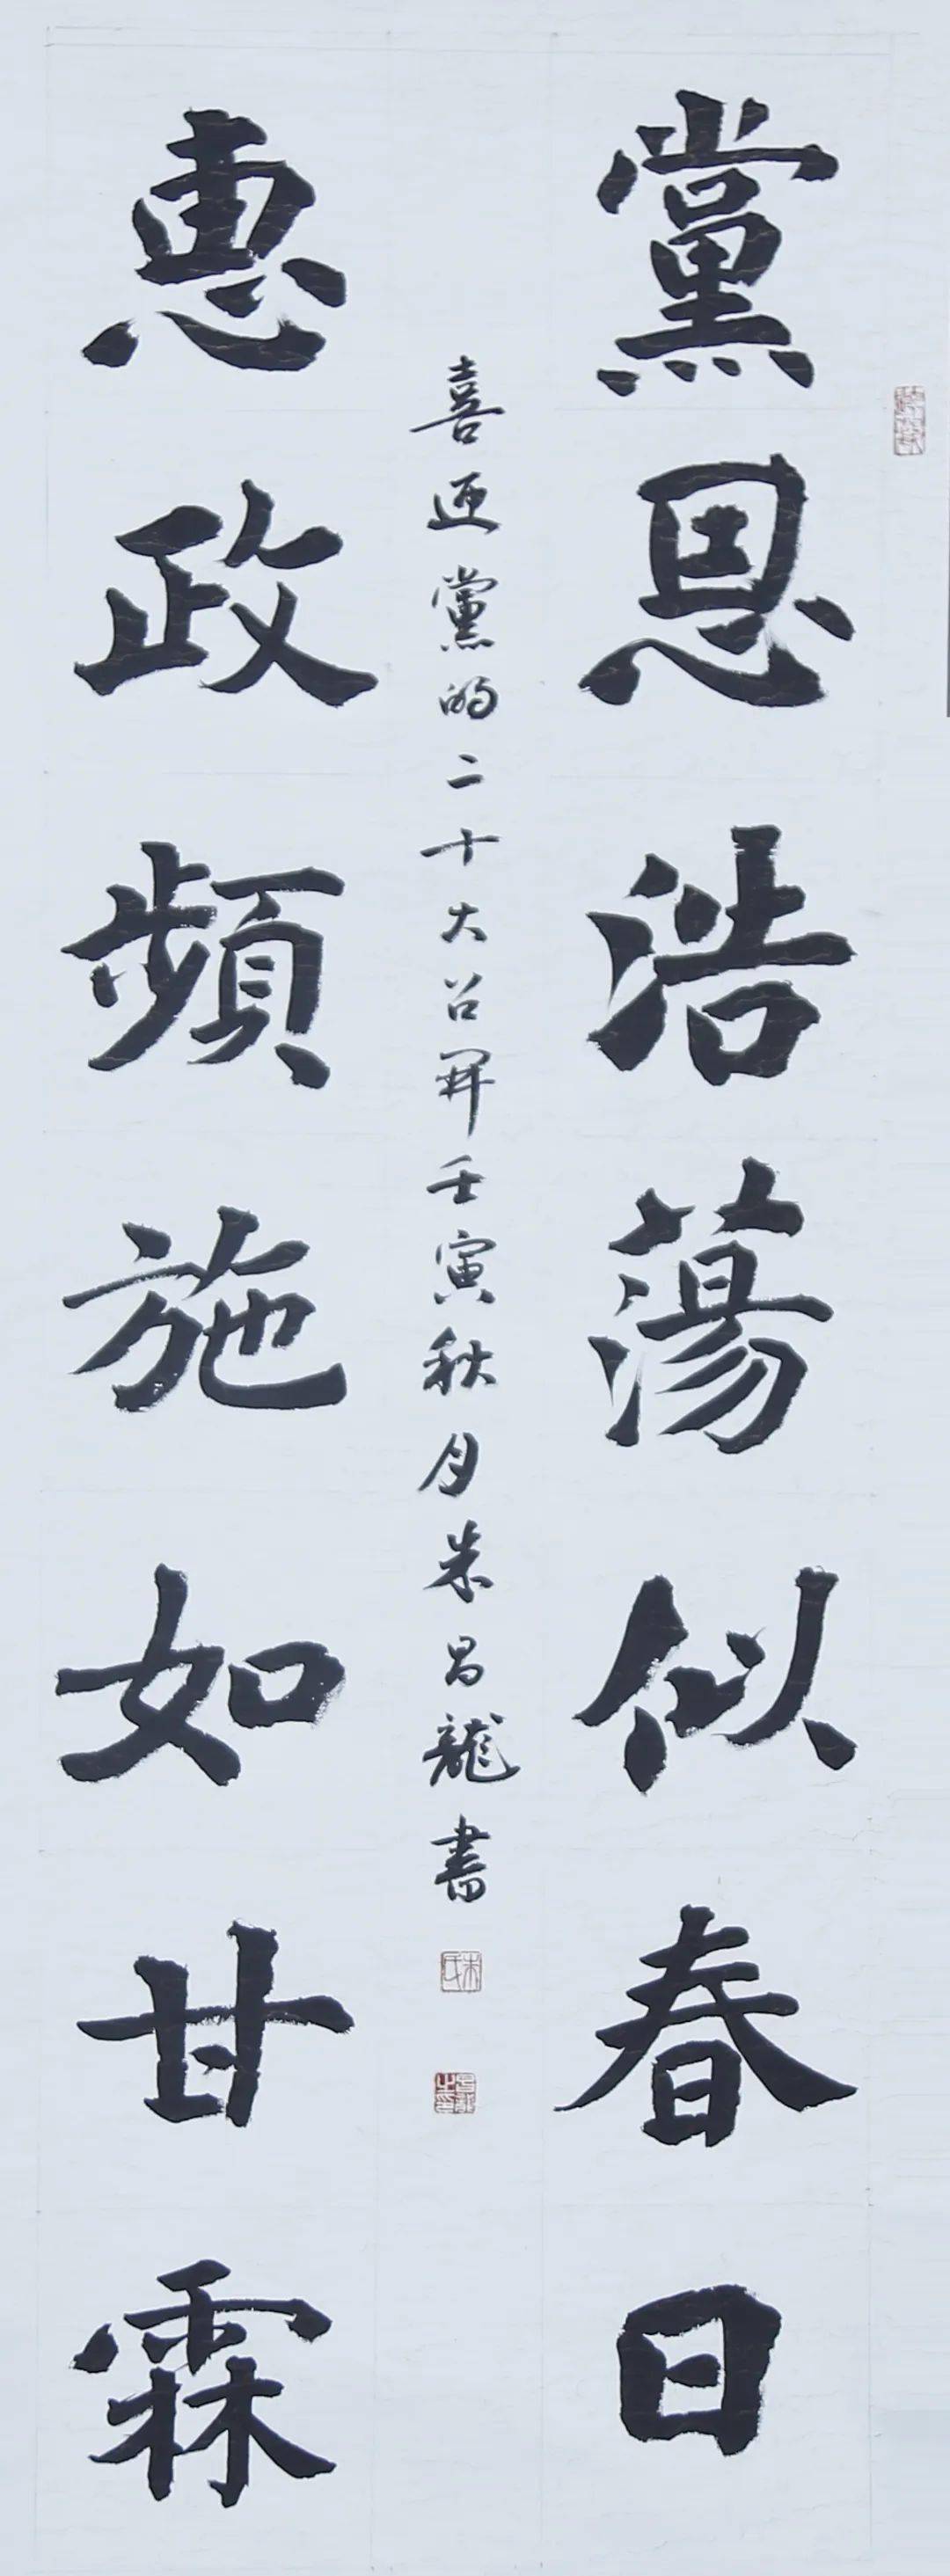 黨恩浩蕩似春日
喜迎黨的二十大召開壬寅秋月朱昌龍書
惠政頻施如甘霖
朱氏